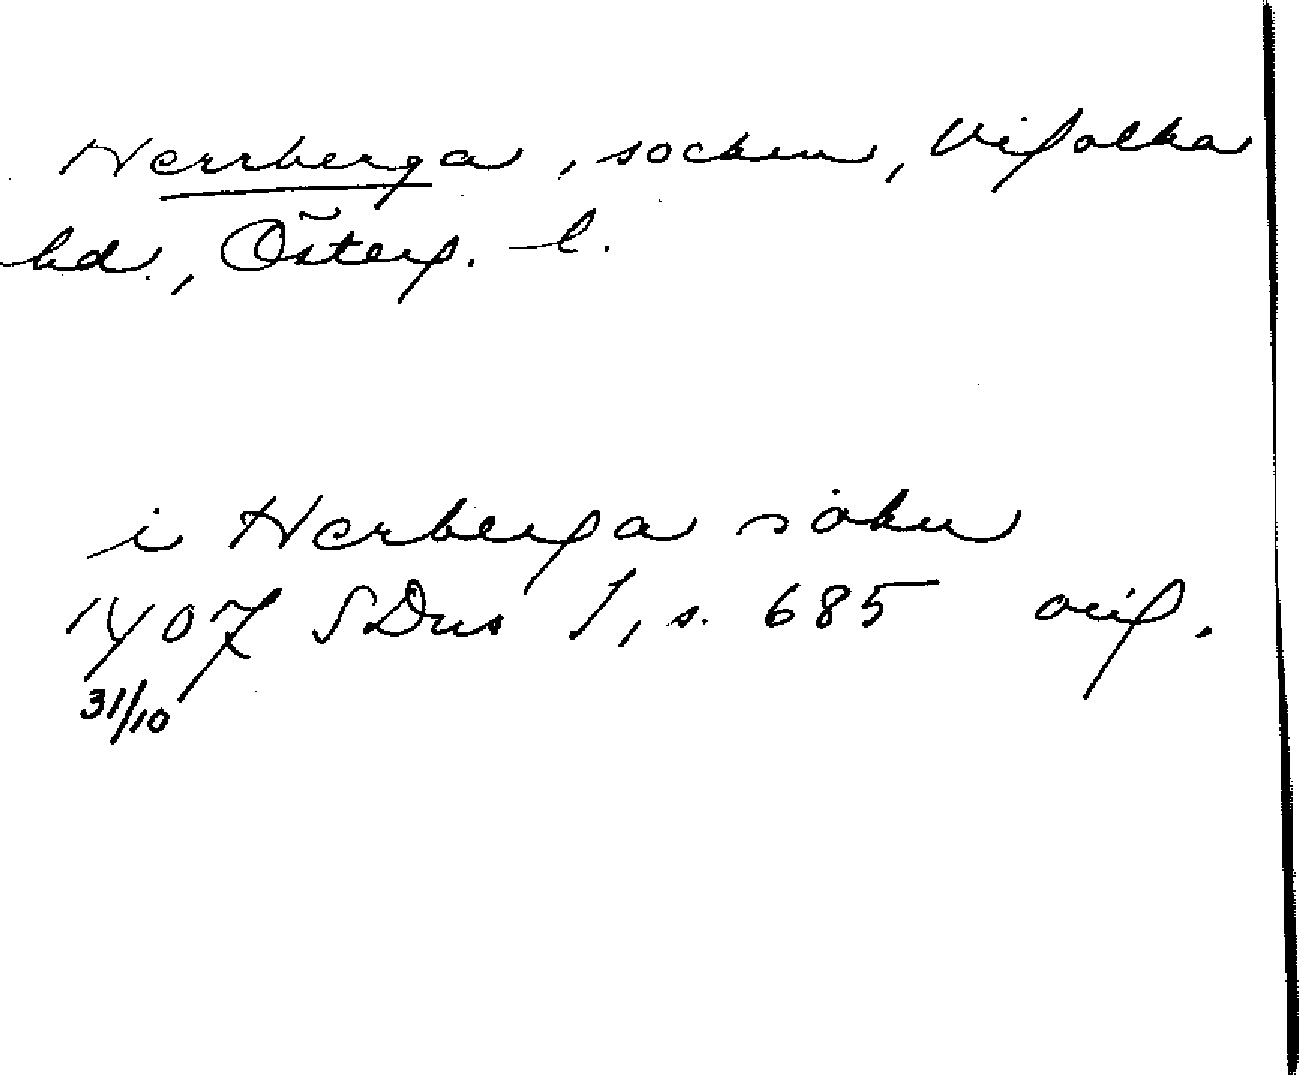 Herrberga, socken, Vifolka
hd., Österg. l.
i Herberga sokn
1407 SDns 1, s. 685 orig.
31/10